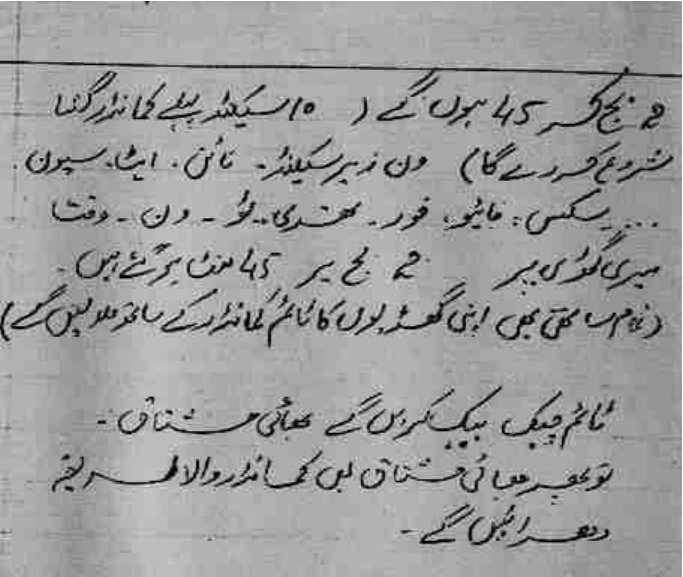 2 بج کر 45 ہوں گے ( 10 سیکنڈ پہلے کمانڈر گننا
شروع کر دے گا) ون زیرو سیکنڈ۔ نائن۔ ایٹ۔ سیون۔
... سکس، فائیو، فور۔ تھری۔ ٹو۔ ون۔ وقت
میری گھڑی پر 2 بج پر 45 منٹ ہو گئے ہیں۔
(تمام ساتھی بھی اپنی گھڑیوں کا ٹائم کمانڈر کے ساتھ ملا لیں گے)
ٹائم چیک بیک کریں گے بھائی مشتاق۔
تو پھر بھائی مشتاق بھی کمانڈر والا طریقہ
دھرائیں گے۔